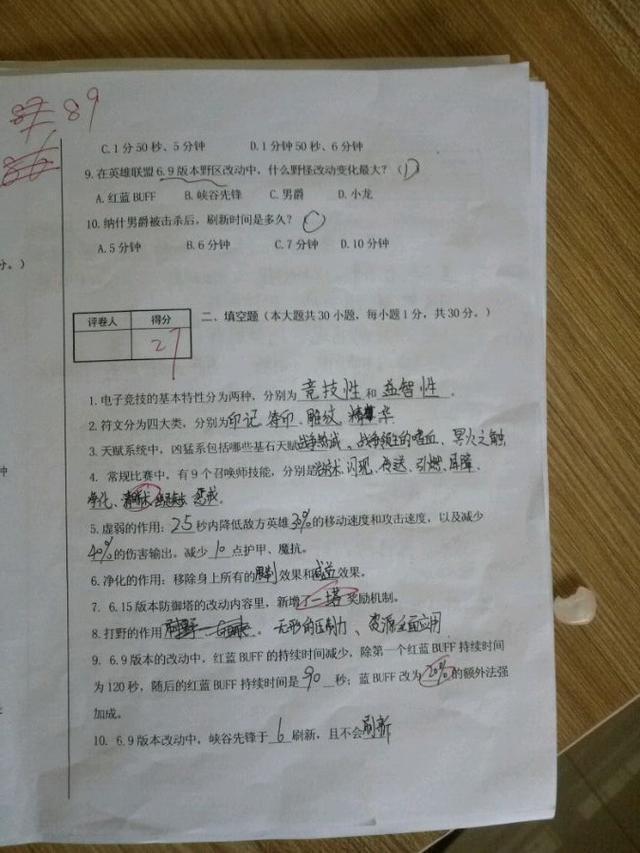 87 89
86
C.1 分 50 秒、5 分钟 D.1 分钟 50 秒、6 分钟
9.在英雄联盟 6.9 版本野区改动中，什么野怪改动变化最大？（D）
A.红蓝 BUFF B.峡谷先锋 C.男爵 D.小龙
10.纳什男爵被击杀后，刷新时间是多久？（C）
A.5 分钟 B.6 分钟 C.7 分钟 D.10 分钟
分。）
评卷人 得分
27
二、填空题（本大题共 30 小题，每小题 1 分，共 30 分。）
1.电子竞技的基本特性分为两种，分别为 竞技性 和 益智性 。
2.符文分为四大类，分别为印记、符印、雕纹、精华
3.天赋系统中，凶猛系包括哪些基石天赋战争热诚、战争领主的嗜血、冥火之触
4. 常规比赛中，有 9 个召唤师技能，分别是治疗术、闪现、传送、引燃、屏障、
钟
净化、清晰术、惩戒、
5.虚弱的作用：25秒内降低敌方英雄30%的移动速度和攻击速度，以及减少
40%的伤害输出。减少 10 点护甲、魔抗。
6.净化的作用：移除身上所有的限制效果和减益效果。
7. 6.15 版本防御塔的改动内容里，新增了一塔奖励机制。
8.打野的作用 。无形的压制力、资源全面应用
9. 6.9 版本的改动中，红蓝 BUFF 的持续时间减少，除第一个红蓝 BUFF 持续时间
为 120 秒，随后的红蓝 BUFF 持续时间是 90 秒；蓝 BUFF 改为 20% 的额外法强
加成。
10. 6.9 版本改动中，峡谷先锋于 6 刷新，且不会刷新